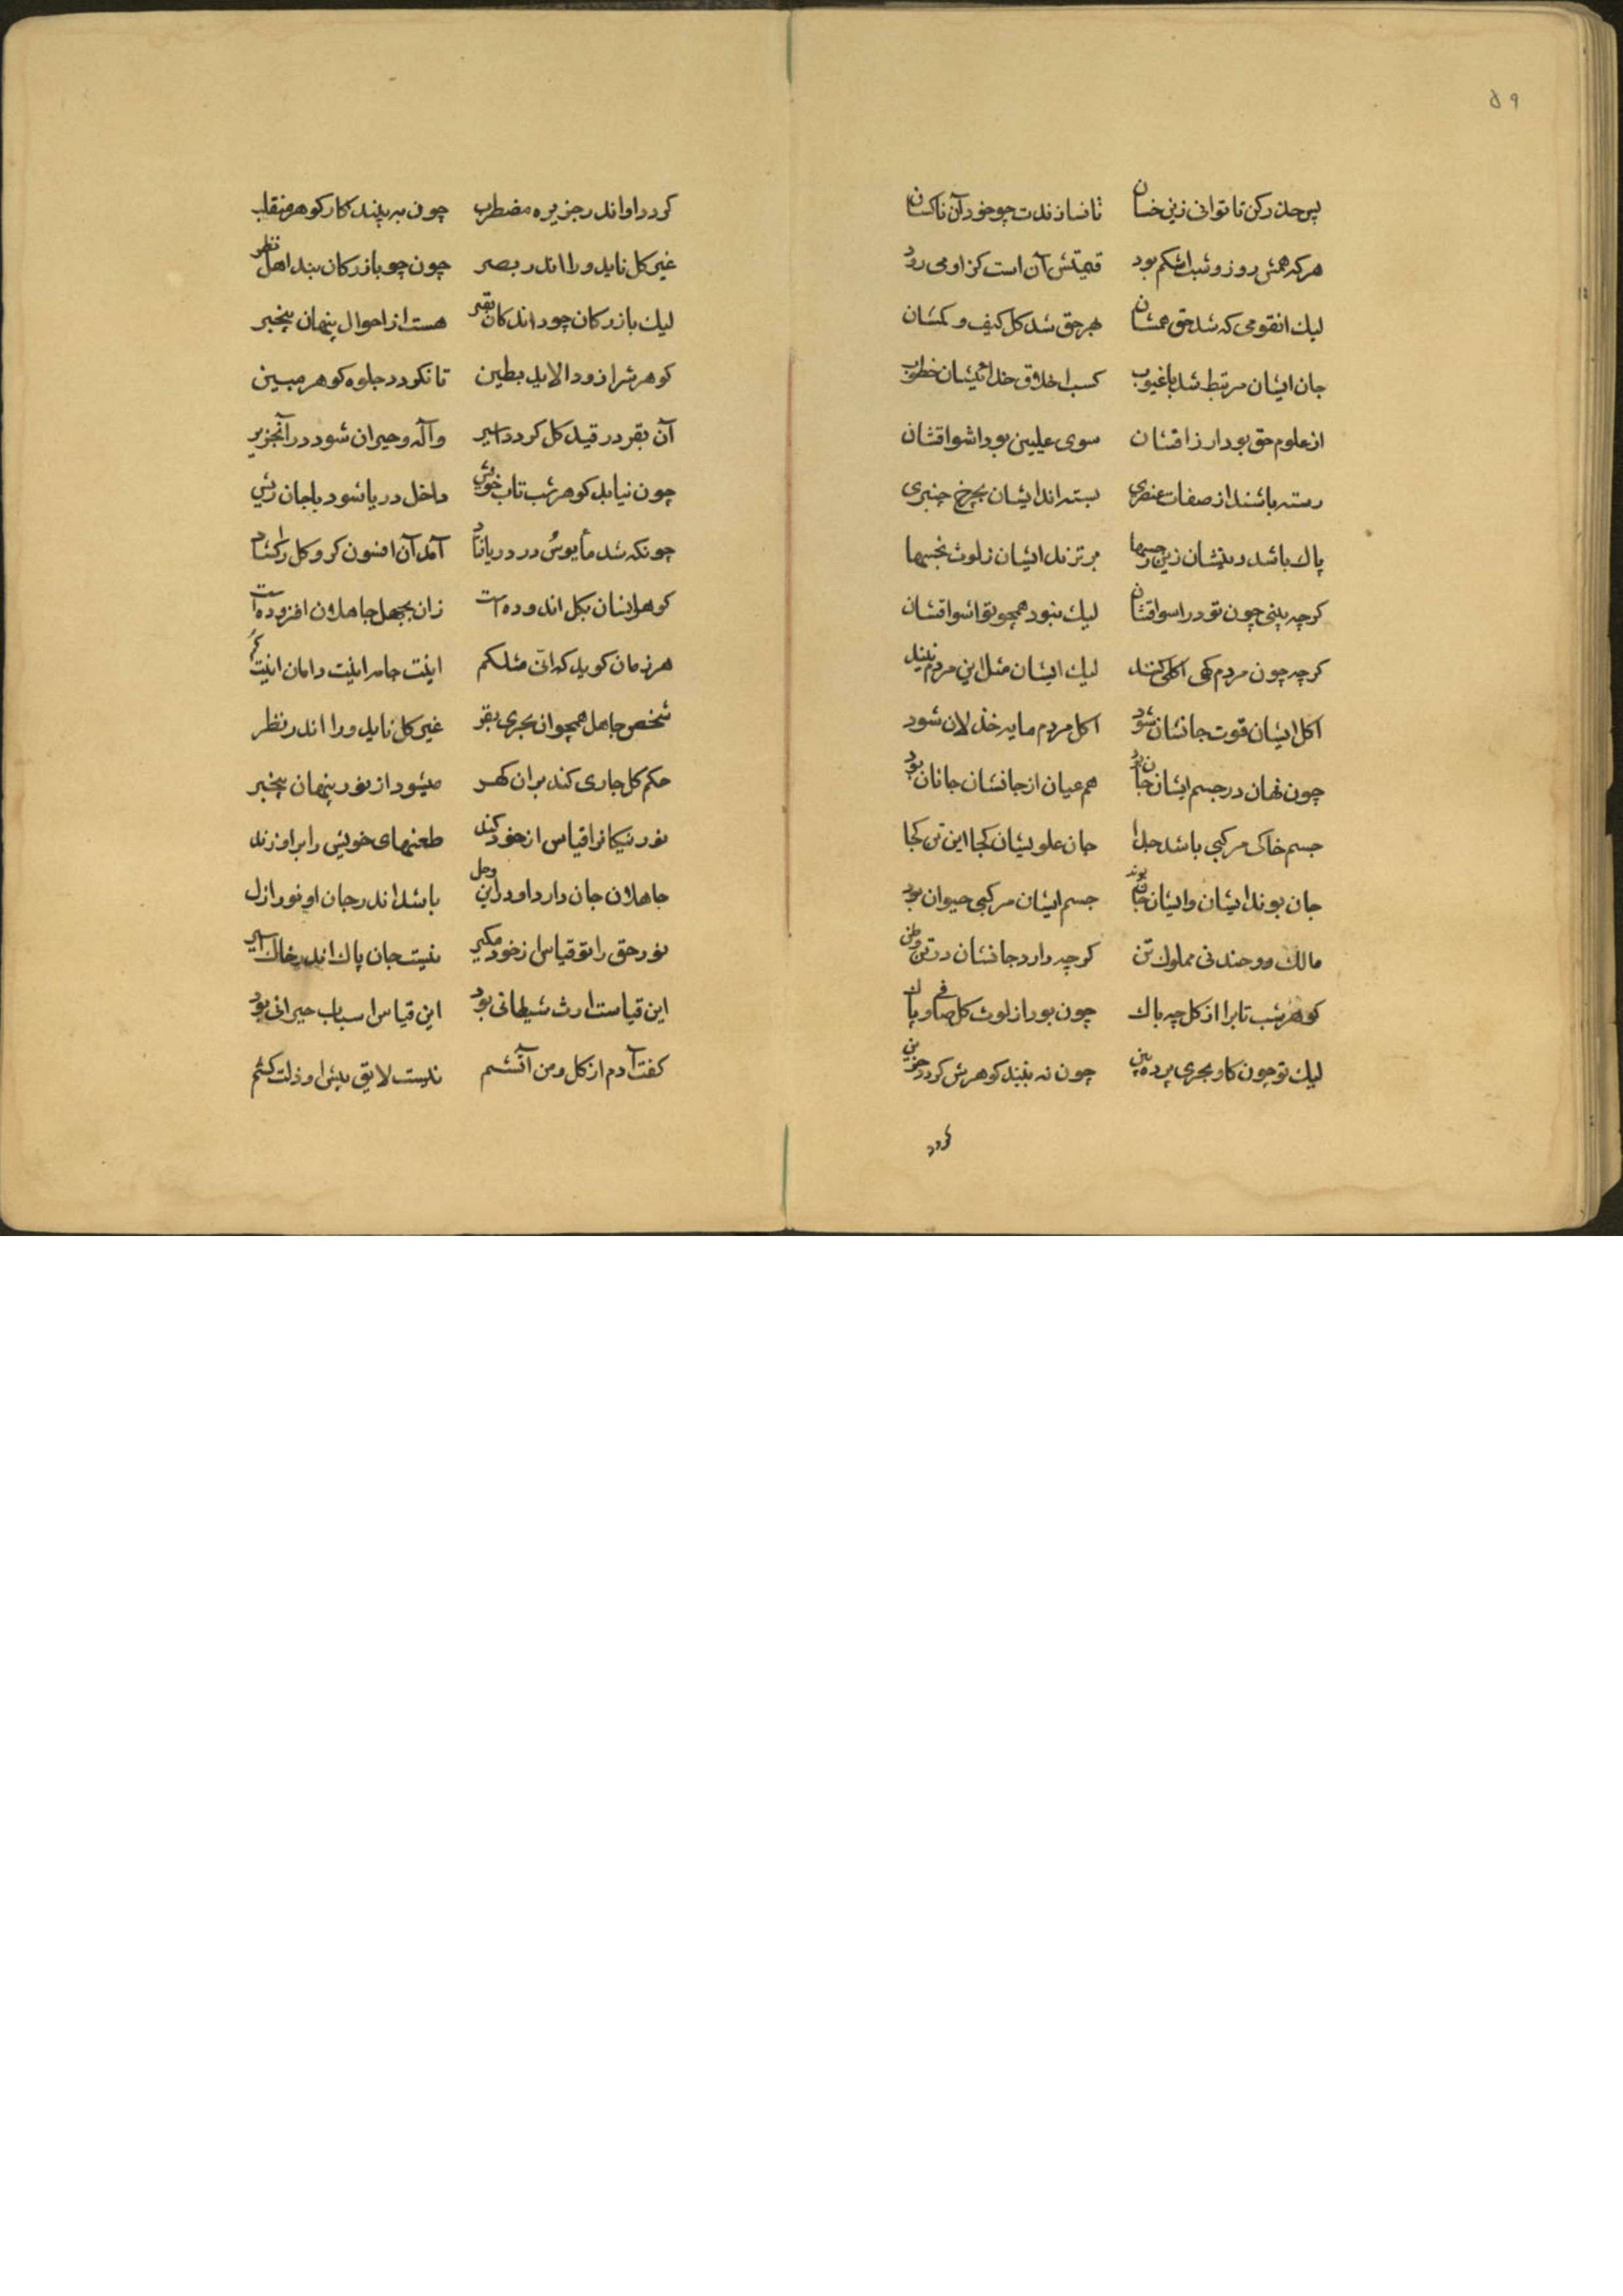 ٥٩
پس حذر کن تا توانی زین خسان تا نسازندت چو خود آن ناکسان
هر که همش روز و شب اشکم بود قیمتش آن است کز او می رود
لیک انقومی که شد حق همشان بهر حق شد کل کیف و کمشان
جان ایشان مرتبط شد با غیوب کسب اخلاق خدا
از علوم حق بود ارزاقشان سوی علیین بود اشواقشان
رسته باشند از صفات عنصری بسته اند ایشان بچرخ چنبری
پاک باشد دینشان زین برترند ایشان ز لوث نجسها
کرچه بینی چون تو در اسواقشان لیک نبود همچو تو اشواقشان
کرچه چون مردم کهی اکلی کنند لیک ایشان مثل این مردم نیند
اکل ایشان قوت جانشان شود اکل مردم مایه خذلان شود
چون نهان در جسم ایشان جان بود هم عیان از جانشان جانان بود
جسم خاکی مرکبی باشد جدا جان علویشان کجا این تن کجا
جان بوند ایشان و ایشان جان بوند جسم ایشان مرکبی حیوان بود
مالک روحند نی مملوک تن کرچه دارد جانشان در تن وطن
کوهر شب تابرا از کل چه باک چون بود از لوث کل صافی و پاک
لیک تو چون کاو بحری پرده بین چون نه بیند کوهرش کردد حزین
کردد
کردد او اندر جزیره مضطرب چون به بیند کار کوهر منقلب
غیر کل ناید ورا اندر بصر چون چو بازرکان بند اهل نظر
لیک بازرکان چو داند کان بقر هست از احوال پنهان بیخبر
کوهرش را زود الاید بطین تا نکردد جلوه کوهر مبین
آن بقر در قید کل کردد اسیر واله و حیران شود در آنجزیر
چون نیابد کوهر شب تاب خویش داخل دریا شود با جان ریش
چونکه شد مأیوس در دریا فتاد آمد آن افسون کر و کل را کشاد
کوهر ایشان بکل اندوده است زان بجهل جاهلان افزوده است
هر زمان کوید که انی مثلکم اینت جامه اینت دامان اینت کم
شخص جاهل همچو ان بحری بقر غیر کل ناید ورا اندر نظر
حکم کل جاری کند بران کهر میشود از نور پنهان بیخبر
نور نیکانرا قیاس از خود کند طعنهای خویش را بر او زند
جاهلان جان دارد او در این وحل باشد اندر جان او نور ازل
نور حق را تو قیاس از خود مکیر نیست جان پاک اندر خاک اسیر
این قیاست ارث شیطانی بود این قیاس اسباب حیرانی بود
کفت آدم از کل و من آتشم نیست لایق پیش او ذلت کشم